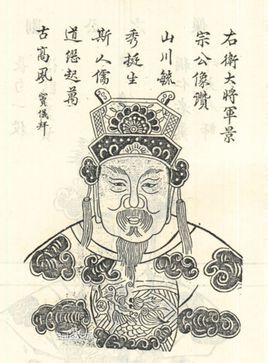 右衛大將軍景
宗公像讚
山川毓
秀挺生
斯人儒
道緫起萬
古高風 竇儀拜